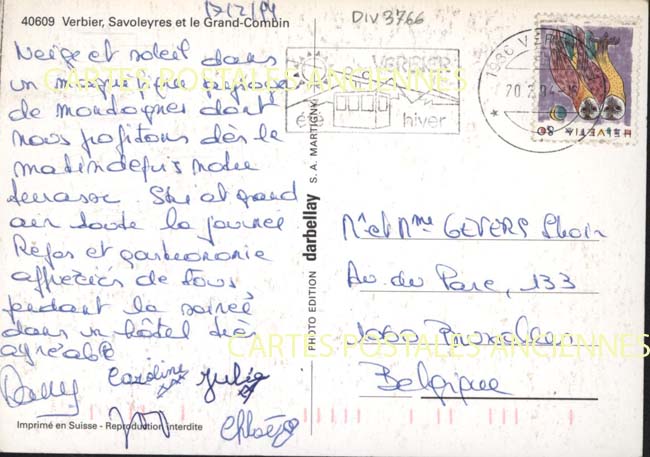 40609 Verbier, Savoleyres et le Grand-Combin
DIV3766
Neige et soleil dans
un magnifique
de montagnes dont
nous profitons dès le
matin depuis notre
terrasse. Ski et grand
air toute la journée
Repos et gastronomie
appréciés de tous
pendant la soirée
dans un hôtel très
agréable
Caroline Julie
Chloé
Imprimé en Suisse - Reproduction interdite
PHOTO EDITION darbellay S. A. MARTIGNY
VERBIER
été hiver
1936 VERBIER
20.2.94
HELVETIA 80
Mr et Mme GEVERS
Av. du Parc, 133
1060 Bruxelles
Belgique
CARTES POSTALES ANCIENNES
CARTES POSTALES ANCIENNES